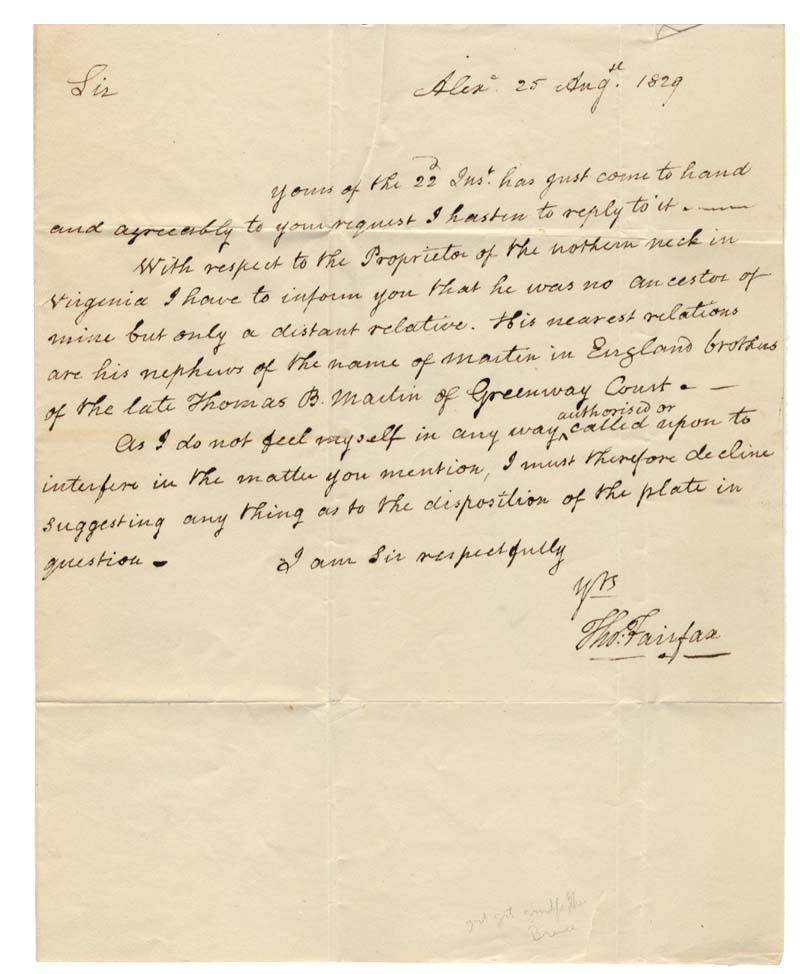 Sir Alexa. 25 Augst. 1829
yours of the 22d Inst. has just come to hand
and agreeably to your request I hasten to reply to it.
With respect to the Proprietor of the nothern neck in
Virginia I have to inform you that he was no ancestor of
mine but only a distant relative. His nearest relations
are his nephews of the name of Martin in England brothers
of the late Thomas B. Martin of Greenway Court.
authorised or
As I do not feel myself in any way ^ called upon to
interfere in the matter you mention, I must therefore decline
suggesting any thing as to the disposition of the plate in
question - I am Sir respectfully
Yrs
Tho. Fairfax